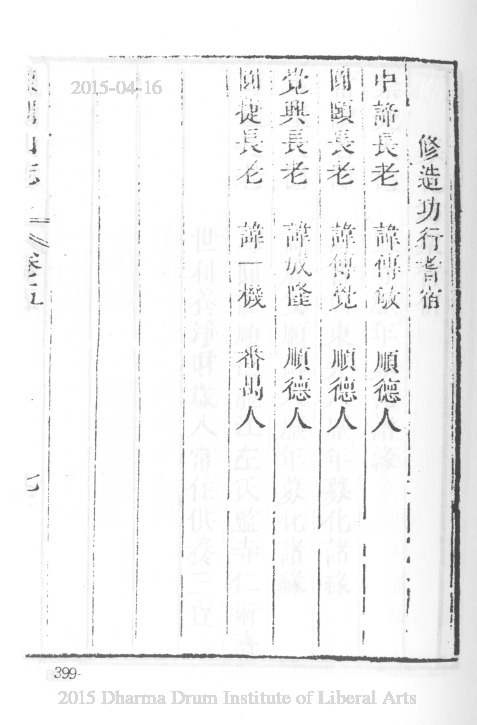 修造功行耆宿
中諦長老　諱傳敏　順德人
圓頤長老　諱傳覺　順德人
覺興長老　諱成隆　順德人
圓捷長老　諱一機　番禺人
山志
卷五
七
399
2015-04-16
2015 Dharma Drum Institute of Liberal Arts